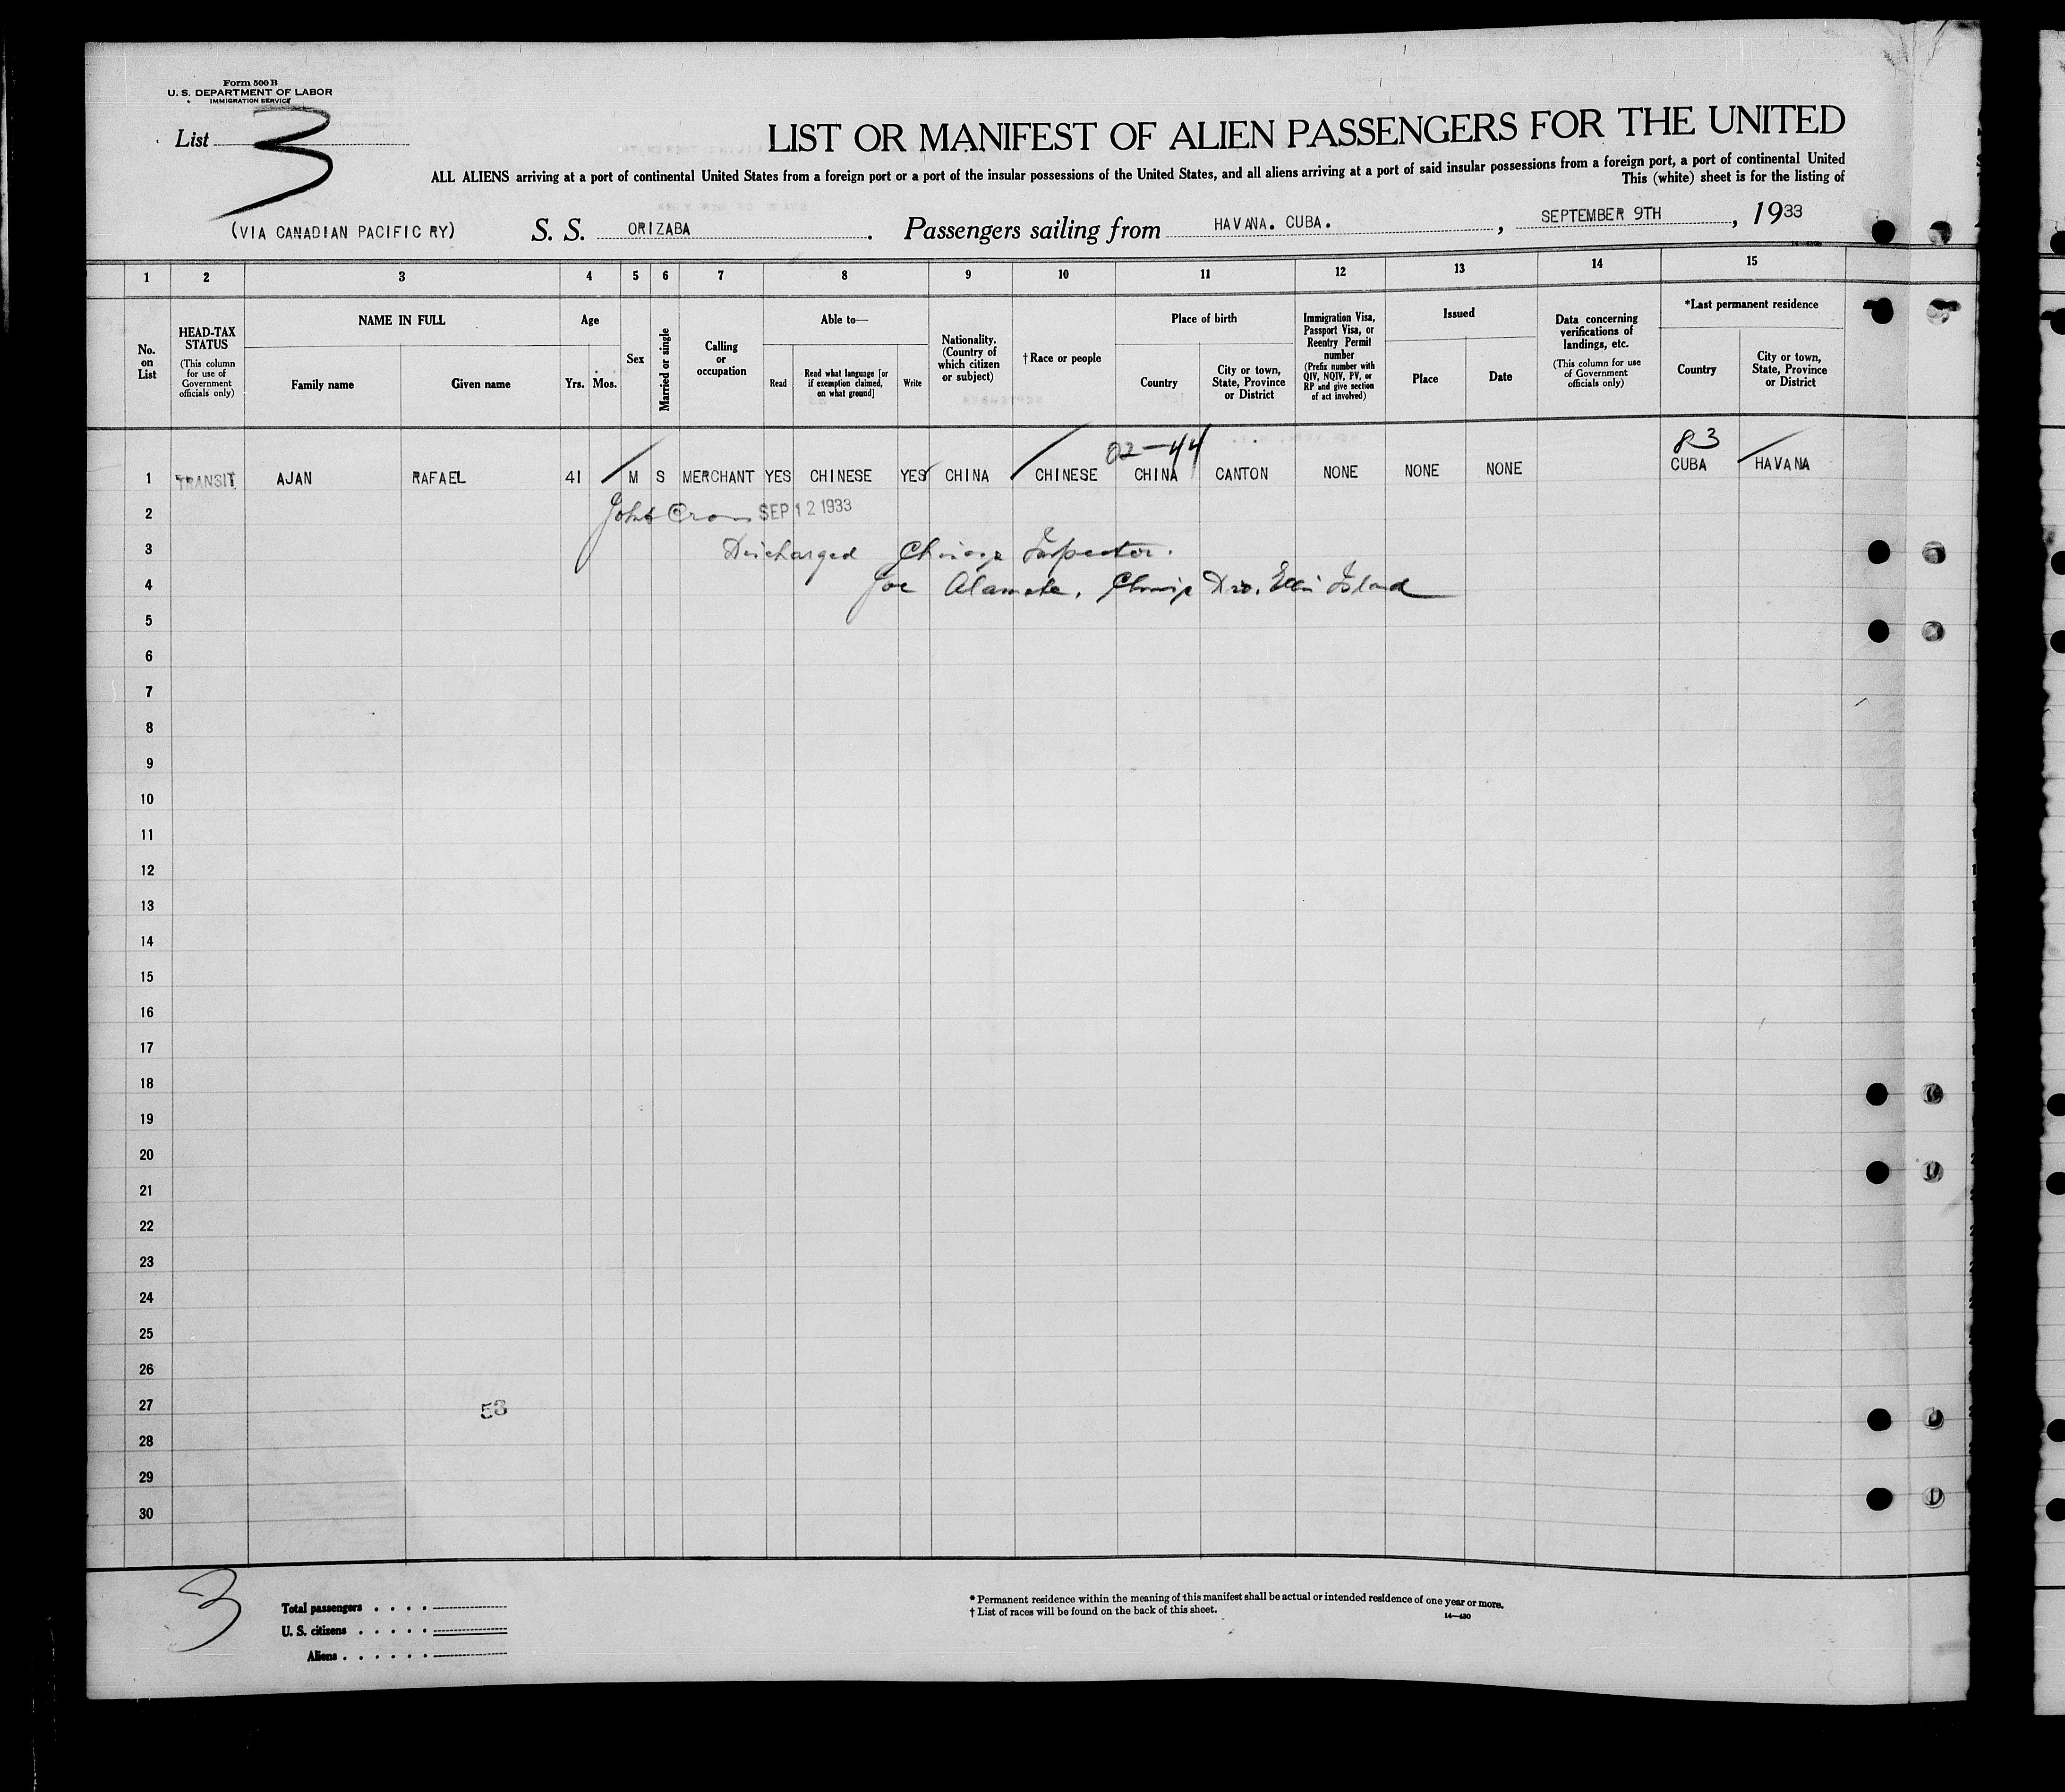 Form 500 B
U. S. DEPARTMENT OF LABOR
IMMIGRATION SERVICE
List 3
LIST OR MANIFEST OF ALIEN PASSENGERS FOR THE UNITED
ALL ALIENS arriving at a port of continental United States from a foreign port or a port of the insular possessions of the United States, and all aliens arriving at a port of said insular possessions from a foreign port, a port of continental United
This (white) sheet is for the listing of
(VIA CANADIAN PACIFIC RY) S. S. ORIZABA. Passengers sailing from HAVANA. CUBA. , SEPTEMBER 9TH, 1933
1 2 3 4 5 6 7 8 9 10 11 12 13 14 15
No. on List
HEAD-TAX STATUS (This column for use of Government officials only)
NAME IN FULL
Family name Given name
Age
Yrs. Mos.
Sex
Married or single
Calling or occupation
Able to—
Read
Read what language [or if exemption claimed, on what ground]
Write
Nationality. (Country of which citizen or subject)
†Race or people
Place of birth
Country
City or town, State, Province or District
Immigration Visa, Passport Visa, or Reentry Permit number (Prefix number with QIV, NQIV, PV, or RP and give section of act involved)
Issued
Place Date
Data concerning verifications of landings, etc. (This column for use of Government officials only)
*Last permanent residence
Country
City or town, State, Province or District
02-44 83
1 TRANSIT AJAN RAFAEL 41 M S MERCHANT YES CHINESE YES CHINA CHINESE CHINA CANTON NONE NONE NONE CUBA HAVANA
2 John SEP 12 1933
3 Discharged Chinese Inspector.
4 Joe Chinese Div. Ellis Island
5
6
7
8
9
10
11
12
13
14
15
16
17
18
19
20
21
22
23
24
25
26
27
53
28
29
30
3
Total passengers
U. S. citizens
Aliens
* Permanent residence within the meaning of this manifest shall be actual or intended residence of one year or more.
† List of races will be found on the back of this sheet.
14—430